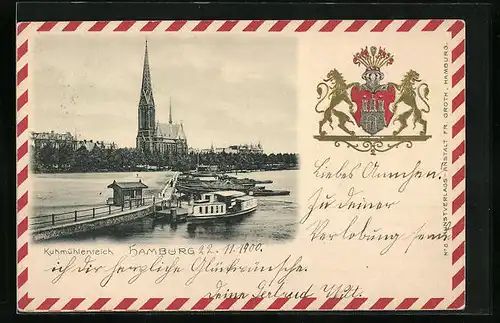 Liebes Annchen.
Zu deiner
Verlobung sende
Kuhmühlenteich HAMBURG 22.11.1900.
ich dir herzliche Glückwünsche.
Deine
KUNSTVERLAGS-ANSTALT FR. GROTH, HAMBURG.